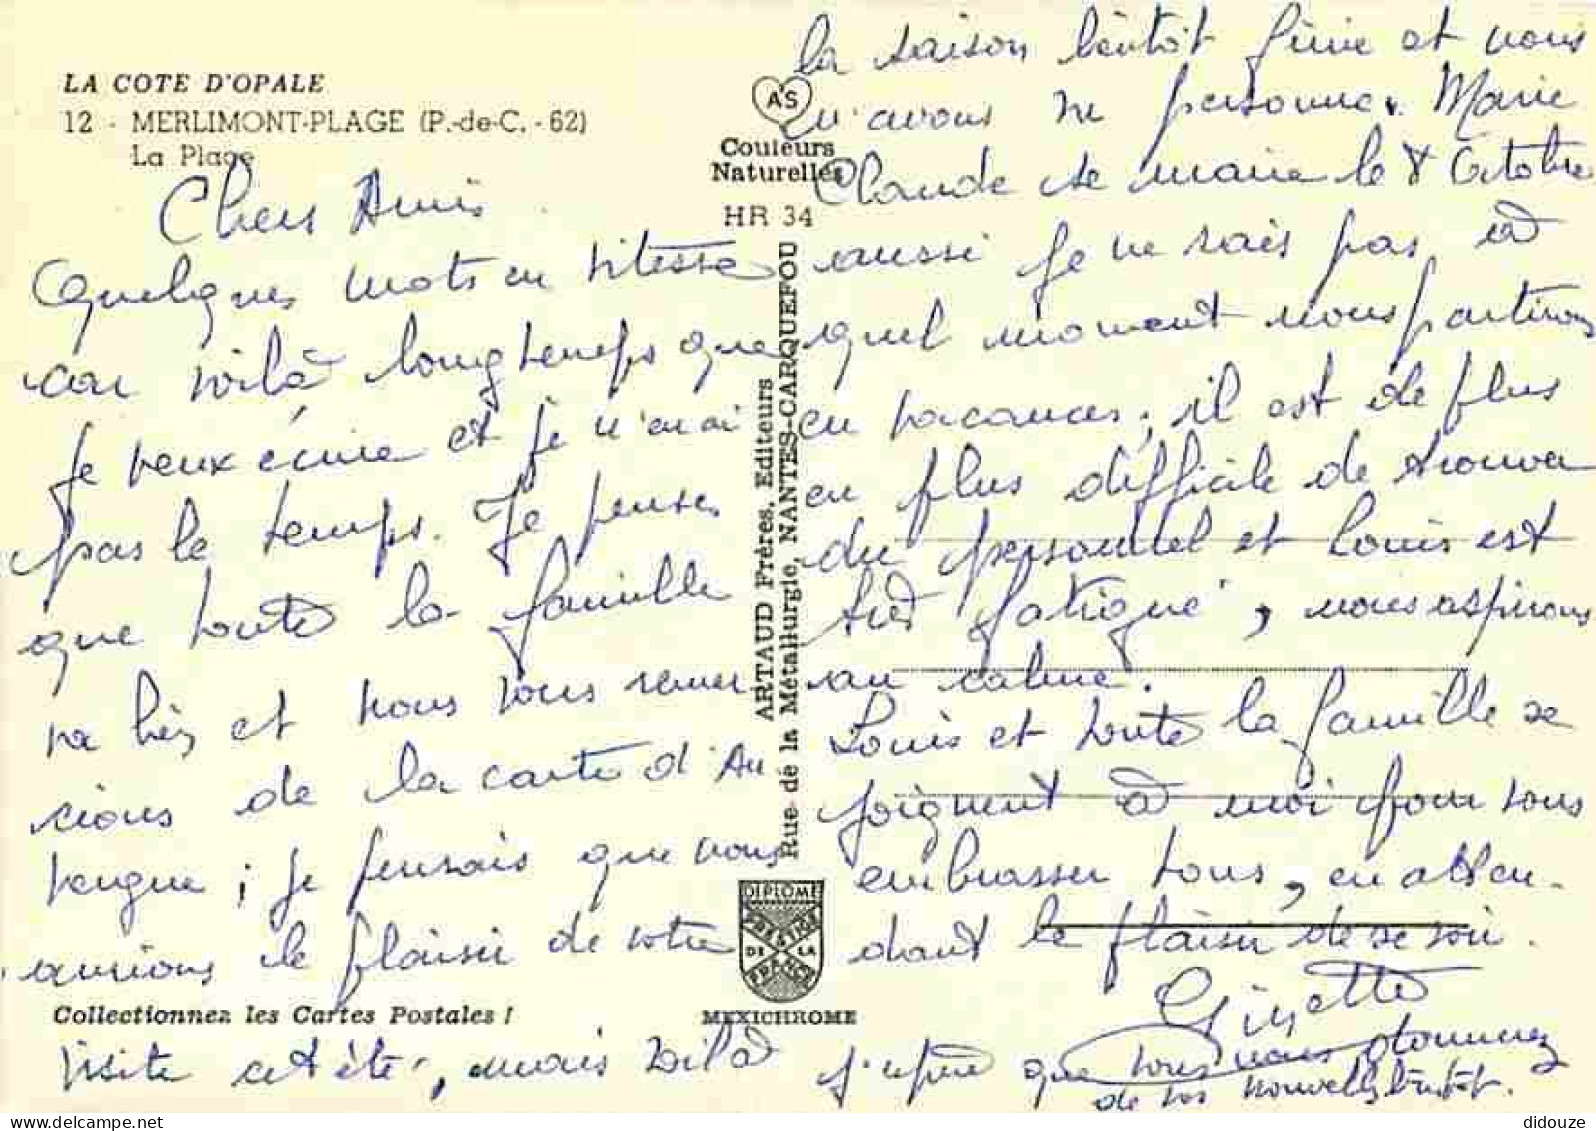 LA COTE D'OPALE
12 - MERLIMONT-PLAGE (P.-de-C. - 62)
La Plage
Chers Amis
Quelques mots en vitesse
car voilà longtemps que
je veux écrire et je n'en ai
pas le temps. Je pense
que toute la famille
va bien et nous vous remer
cions de la carte d'Au
vergne ; je pensais que nous
aurions le plaisir de votre
Collectionnez les Cartes Postales !
visite cet été, mais voilà
A'S
Couleurs
Naturelles
HR 34
ARTAUD Frères, Editeurs
Rue de la Métallurgie, NANTES-CARQUEFOU
DIPLOME
PRESTIGE
DE LA
FRANCE
MEXICHROME
la saison bientôt finie et nous
n'avons vu personne. Marie
Claude se marie le 8 Octobre
aussi je ne sais pas à
quel moment nous partirons
en vacances ; il est de plus
en plus difficile de trouver
du personnel et Louis est
très fatigué, nous aspirons
au calme.
Louis et toute la famille se
joignent à moi pour vous
embrasser tous, en atten-
dant le plaisir de se voir.
Ginette
J'espère que vous nous donnerez
de vos nouvelles bientôt.
didouze